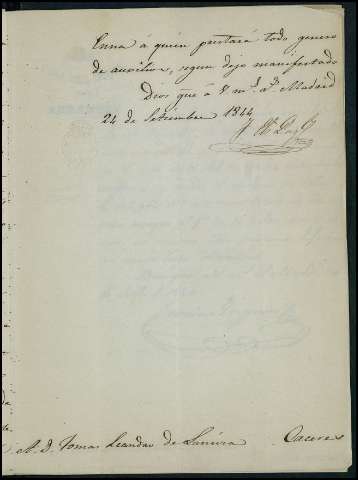 Enna á quien prestará todo genero
de auxilios, segun dejo manifestado
Dios gue á V. ms. as. Madrid
24 de Setiembre 1844
A. D. Tomas Leandro de Caceres